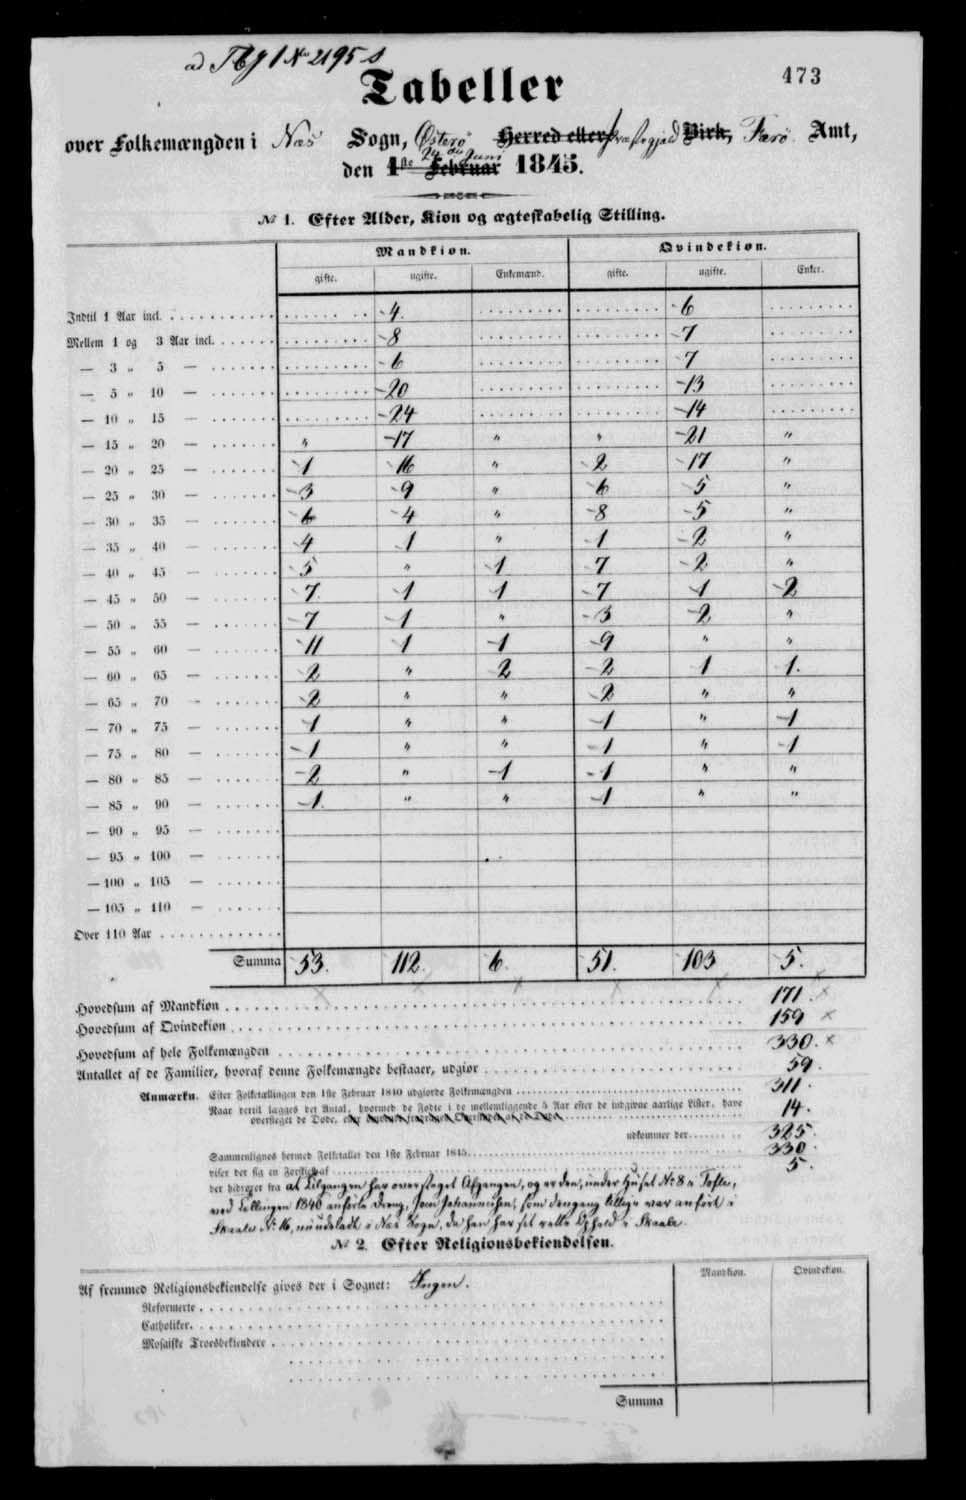 ad Tbg 1 No 2195 s
473
Tabeller
over Folkemængden i Næs Sogn, Østerø Herred eller Præstegjeld Birk, Færø. Amt,
24 de Juni
den 1ste Februar 1845.
No 1. Efter Alder, Kion og ægteskabelig Stilling.
Mandkion. Qvindekion.
gifte. ugifte. Enkemænd. gifte. ugifte. Enker.
Indtil 1 Aar incl. 4. 6
Mellem 1 og 3 Aar incl. 8 7
— 3 „ 5 — 6 7
— 5 „ 10 — 20 13
— 10 „ 15 — 24 14
— 15 „ 20 — „ 17 „ „ 21 „
— 20 „ 25 — 1 16 „ 2 17 „
— 25 „ 30 — 3 9 „ 6 5 „
— 30 „ 35 — 6 4 „ 8 5 „
— 35 „ 40 — 4 1 „ 1 2 „
— 40 „ 45 — 5 „ 1 7 2 „
— 45 „ 50 — 7. 1 1 7 1 2
— 50 „ 55 — 7 1 „ 3 2 „
— 55 „ 60 — 11 1 1 9 „ „
— 60 „ 65 — 2 „ 2 2 1 1.
— 65 „ 70 — 2 „ „ 2 „ „
— 70 „ 75 — 1 „ „ 1 „ 1
— 75 „ 80 — 1 „ „ 1 „ 1
— 80 „ 85 — 2 „ 1 1 „ „
— 85 „ 90 — 1. „ „ 1 „ „
— 90 „ 95 —
— 95 „ 100 —
— 100 „ 105 —
— 105 „ 110 —
Over 110 Aar
Summa 53. 112. 6. 51. 103 5.
Hovedsum af Mandkion 171.
Hovedsum af Qvindekion 159
Hovedsum af hele Folkemængden 330.
Antallet af de Familier, hvoraf denne Folkemængde bestaaer, udgiør 59.
Anmærkn. Efter Folketællingen den 1ste Februar 1840 udgiorde Folkemængden 311.
Naar dertil lægges det Antal, hvormed de Fødte i de mellemliggende 5 Aar efter de indgivne aarlige Lister, have
oversteget de Døde, eller 14.
udkommer der 325.
Sammenlignes hermed Folketallet den 1ste Februar 1845 330.
viser der sig en Forskiel af 5.
der hidrører fra at Tilgangen har oversteget Afgangen, og er den, under Huset No 8 i Tofte,
ved Tellingen 1840 anførte Dreng, Johannesen, som dengang tillige var anført i
Skaale No 16, i Næs Sogn, da han har sit Ophold i Skaale.
No 2. Efter Religionsbekiendelsen.
Mandkion. Qvindekion.
Af fremmed Religionsbekiendelse gives der i Sognet: Ingen.
Reformerte
Catholiker
Mosaiske Troesbekiendere
Summa